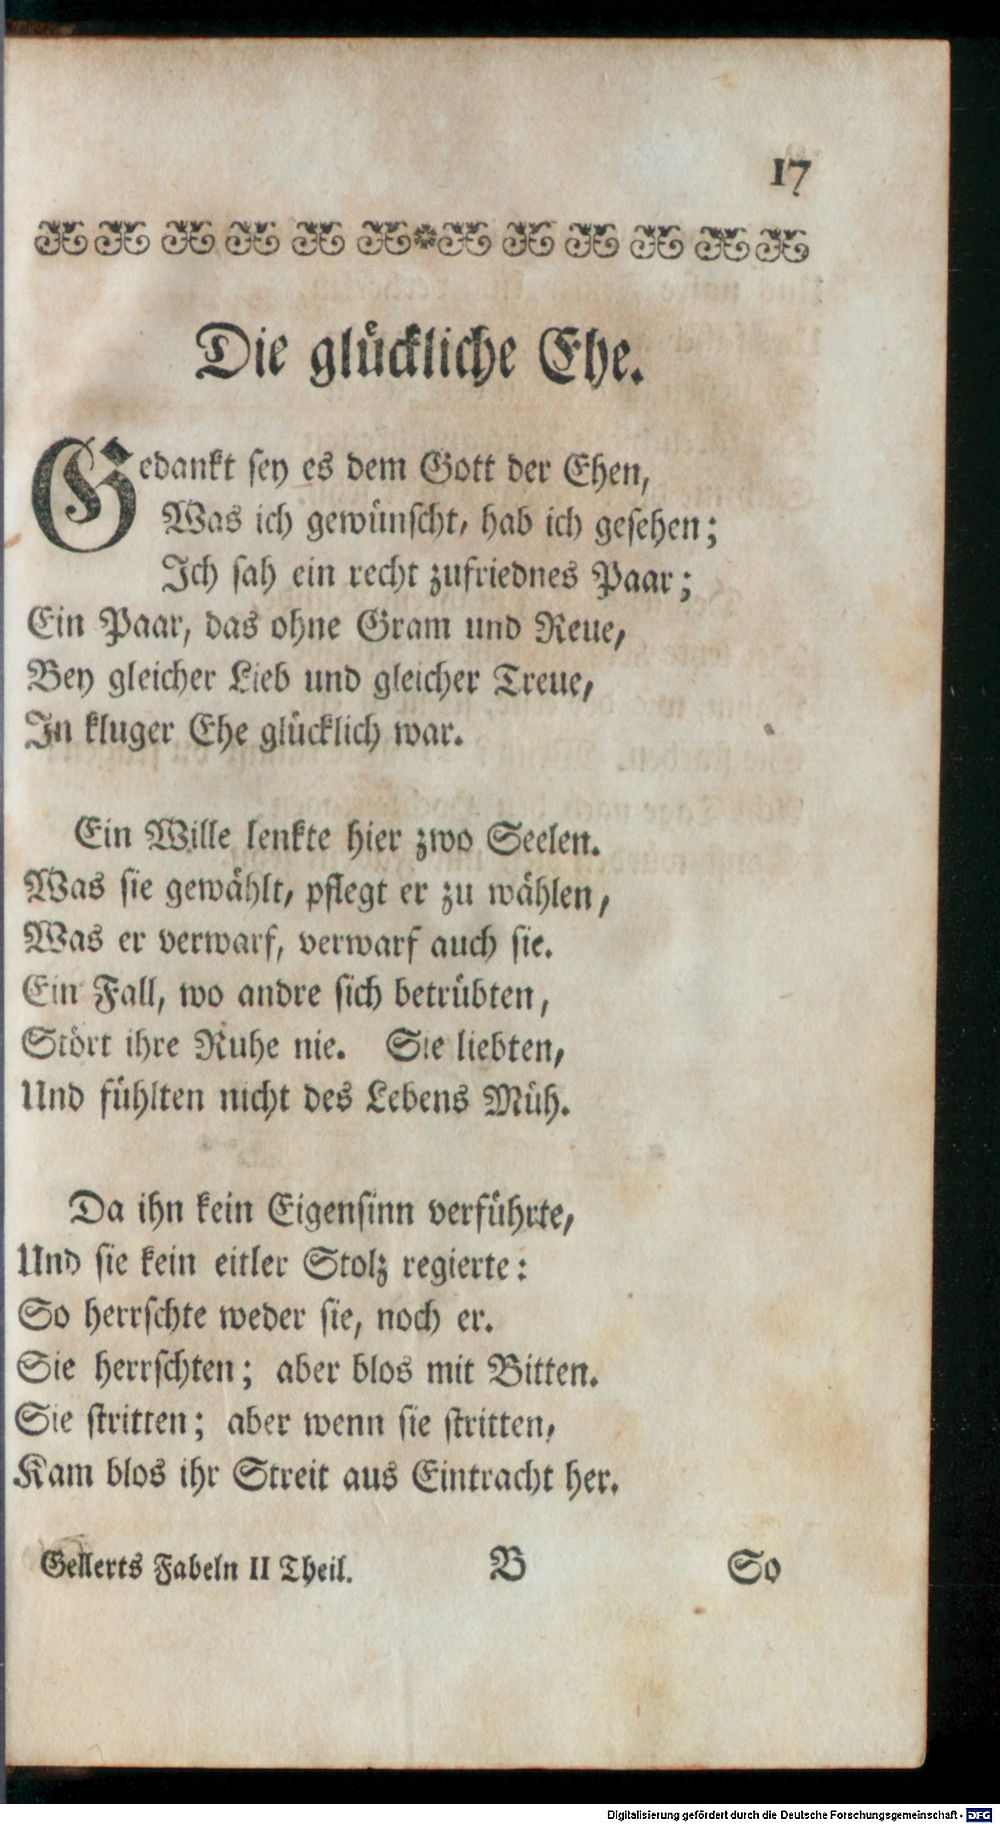 17
Die glückliche Ehe.
Gedankt sey es dem Gott der Ehen,
Was ich gewünscht, hab ich gesehen;
Ich sah ein recht zufriednes Paar;
Ein Paar, das ohne Gram und Reue,
Bey gleicher Lieb und gleicher Treue,
In kluger Ehe glücklich war.
Ein Wille lenkte hier zwo Seelen.
Was sie gewählt, pflegt er zu wählen,
Was er verwarf, verwarf auch sie.
Ein Fall, wo andre sich betrübten,
Stört ihre Ruhe nie. Sie liebten,
Und fühlten nicht des Lebens Müh.
Da ihn kein Eigensinn verführte,
Und sie kein eitler Stolz regierte:
So herrschte weder sie, noch er.
Sie herrschten; aber blos mit Bitten.
Sie stritten; aber wenn sie stritten,
Kam blos ihr Streit aus Eintracht her.
Gellerts Fabeln II Theil. B So
Digitalisierung gefördert durch die Deutsche Forschungsgemeinschaft - DFG